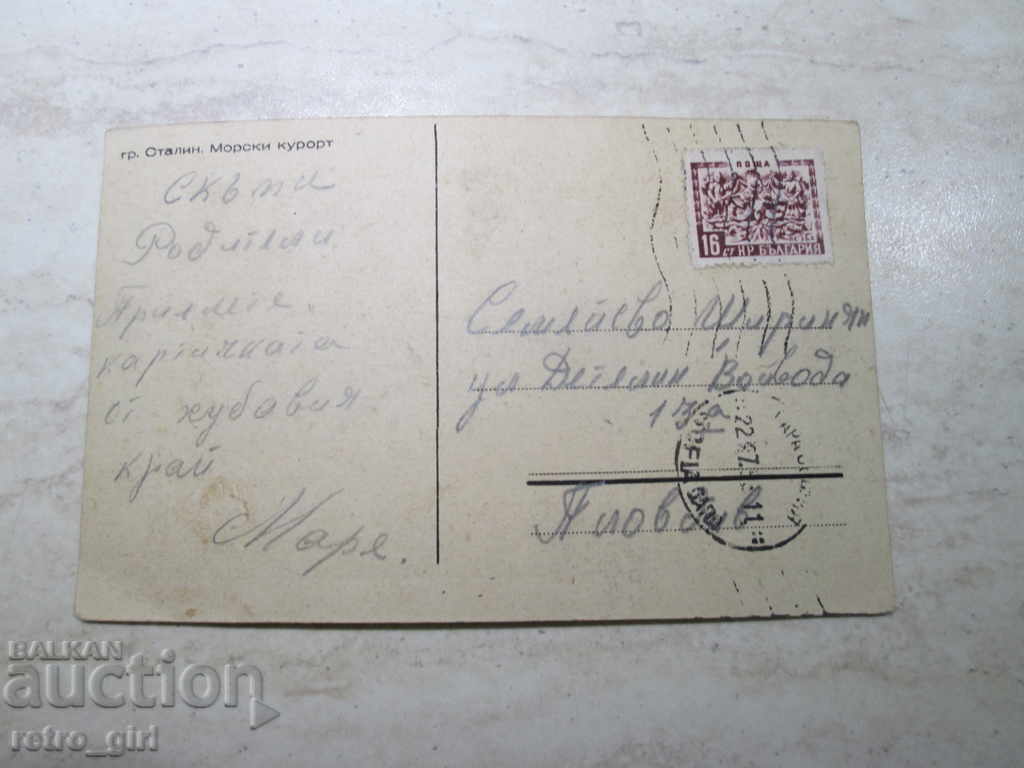 гр. Сталин. Морски курорт
Скъпи
Родители
Приемете
картичката
от хубавия
край
Маре.
ПОЩА
16 СТ НР БЪЛГАРИЯ
Семейство
ул Детелин Войвода
13
Пловдив
22
11
BALKAN
auction
retro_girl